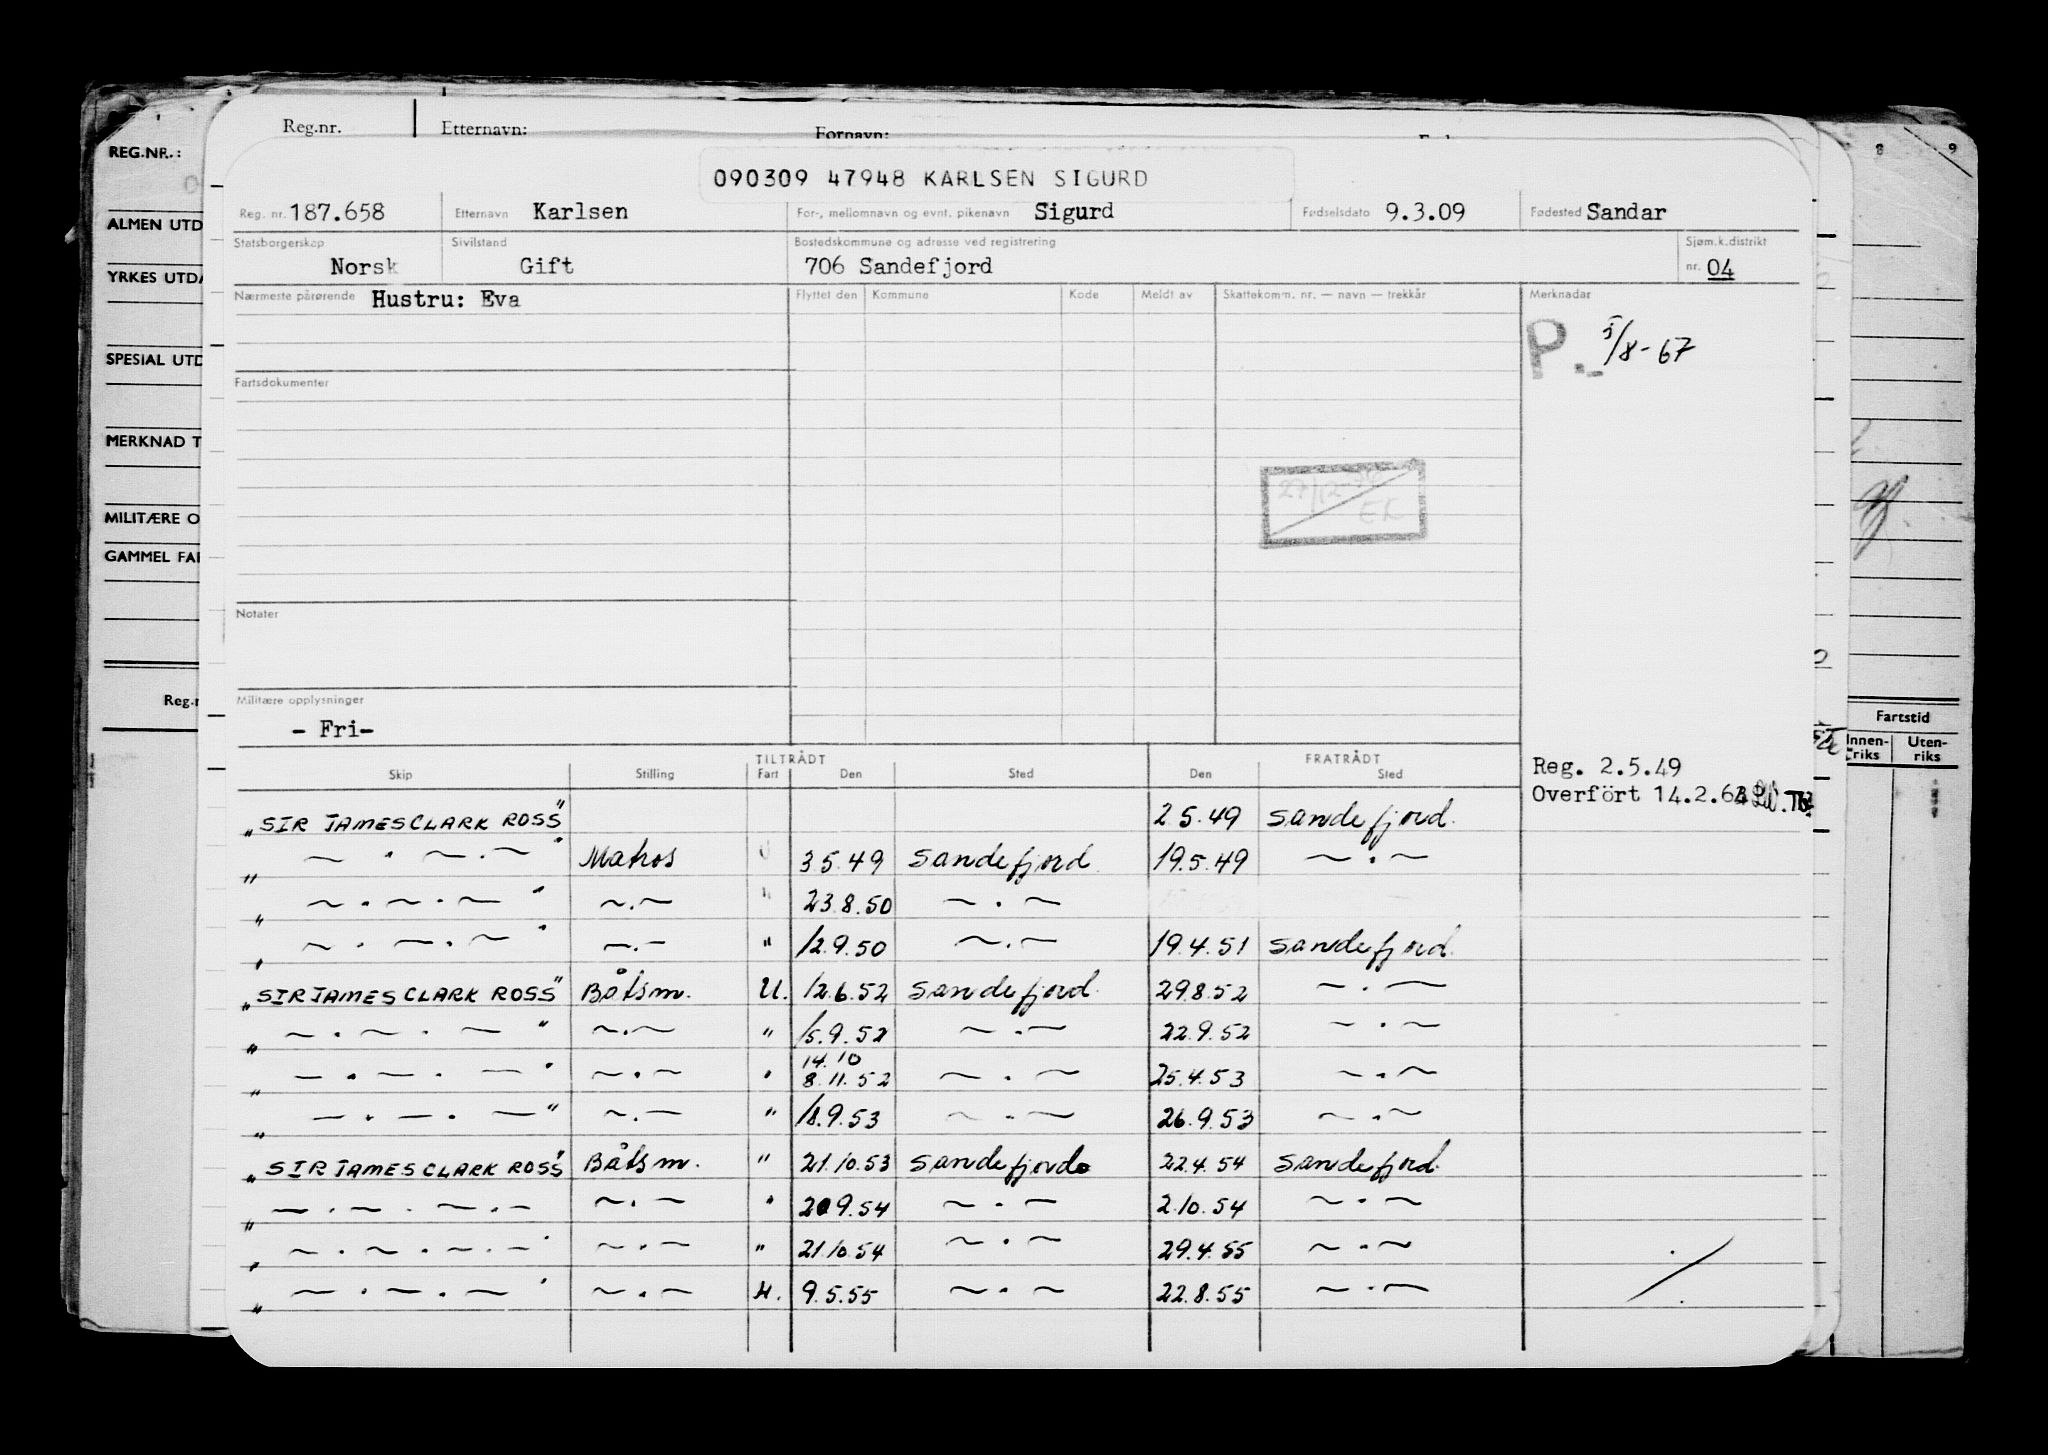 Reg.nr. Etternavn: Fornavn:
REG.NR.: 8 9
090309 47948 KARLSEN SIGURD
Reg. nr. 187.658 Etternavn Karlsen For-, mellomnavn og evnt. pikenavn Sigurd Fødselsdato 9.3.09 Fødested Sandar
ALMEN UTD
Statsborgerskap Sivilstand Bostedskommune og adresse ved registrering Sjøm.k.distrikt
Norsk Gift 706 Sandefjord nr. 04
YRKES UTDA
Nærmeste pårørende Hustru: Eva Flyttet den Kommune Kode Meldt av Skattekomm. nr. — navn — trekkår Merknadar
P. 5/8-67
SPESIAL UTD
Fartsdokumenter
MERKNAD T
27/12-
EK
MILITÆRE O
GAMMEL FAR
Notater
Militære opplysninger
Reg.n
- Fri-
Fartstid
Innenriks Utenriks
TILTRÅDT FRATRÅDT
Skip Stilling Fart Den Sted Den Sted
Reg. 2.5.49
Overfört 14.2.63
"SIR JAMES CLARK ROSS" 2.5.49 Sandefjord.
" ~ . ~ . ~ " Matros U 3.5.49 Sandefjord 19.5.49 ~ . ~
" ~ . ~ . ~ " ~ . ~ " 23.8.50 ~ . ~
" ~ . ~ . ~ " ~ . ~ " 12.9.50 ~ . ~ 19.4.51 Sandefjord
"SIR JAMES CLARK ROSS" Båtsm. U. 12.6.52 Sandefjord 29.8.52 ~ . ~
" ~ . ~ . ~ " ~ . ~ " 15.9.52 ~ . ~ 22.9.52 ~ . ~
14.10
" ~ . ~ . ~ " ~ . ~ " 8.11.52 ~ . ~ 25.4.53 ~ . ~
" ~ . ~ . ~ " ~ . ~ " 18.9.53 ~ . ~ 26.9.53 ~ . ~
"SIR JAMES CLARK ROSS" Båtsm. " 21.10.53 Sandefjord 22.4.54 Sandefjord.
" ~ . ~ . ~ . ~ ~ . ~ " 20.9.54 ~ . ~ 2.10.54 ~ . ~
" ~ . ~ . ~ . ~ " ~ . ~ " 21.10.54 ~ . ~ 29.4.55 ~ . ~
" ~ . ~ . ~ " ~ . ~ H. 9.5.55 ~ . ~ 22.8.55 ~ . ~